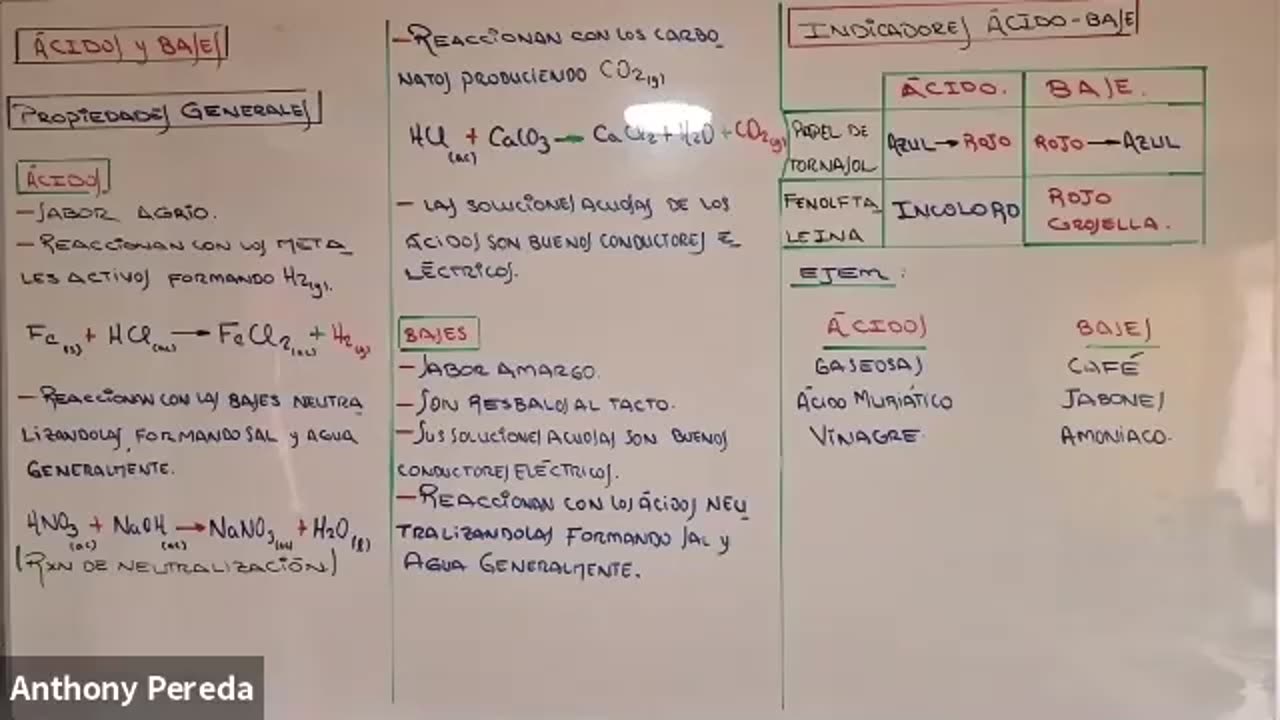 ÁCIDOS Y BASES
PROPIEDADES GENERALES
ÁCIDOS
- SABOR AGRIO.
- REACCIONAN CON LOS META
LES ACTIVOS FORMANDO H2(g).
Fe(s) + HCl(ac) → FeCl2(ac) + H2(g)
- REACCIONAN CON LAS BASES NEUTRA
LIZANDOLAS, FORMANDO SAL Y AGUA
GENERALMENTE.
HNO3(ac) + NaOH(ac) → NaNO3(ac) + H2O(l)
(RXN DE NEUTRALIZACIÓN)
- REACCIONAN CON LOS CARBO
NATOS PRODUCIENDO CO2(g)
HCl(ac) + CaCO3 → CaCl2 + H2O + CO2(g)
- LAS SOLUCIONES ACUOSAS DE LOS
ÁCIDOS SON BUENOS CONDUCTORES E
LÉCTRICOS.
BASES
- SABOR AMARGO.
- SON RESBALOSAS AL TACTO.
- SUS SOLUCIONES ACUOSAS SON BUENOS
CONDUCTORES ELÉCTRICOS.
- REACCIONAN CON LOS ÁCIDOS NEU
TRALIZANDOLAS FORMANDO SAL Y
AGUA GENERALMENTE.
INDICADORES ÁCIDO-BASE
ÁCIDO. BASE.
PAPEL DE
TORNASOL AZUL → ROJO ROJO → AZUL
FENOLFTA
LEINA INCOLORO ROJO
GROSELLA.
EJEM:
ÁCIDOS BASES
GASEOSAS CAFÉ
ÁCIDO MURIÁTICO JABONES
VINAGRE. AMONÍACO.
Anthony Pereda